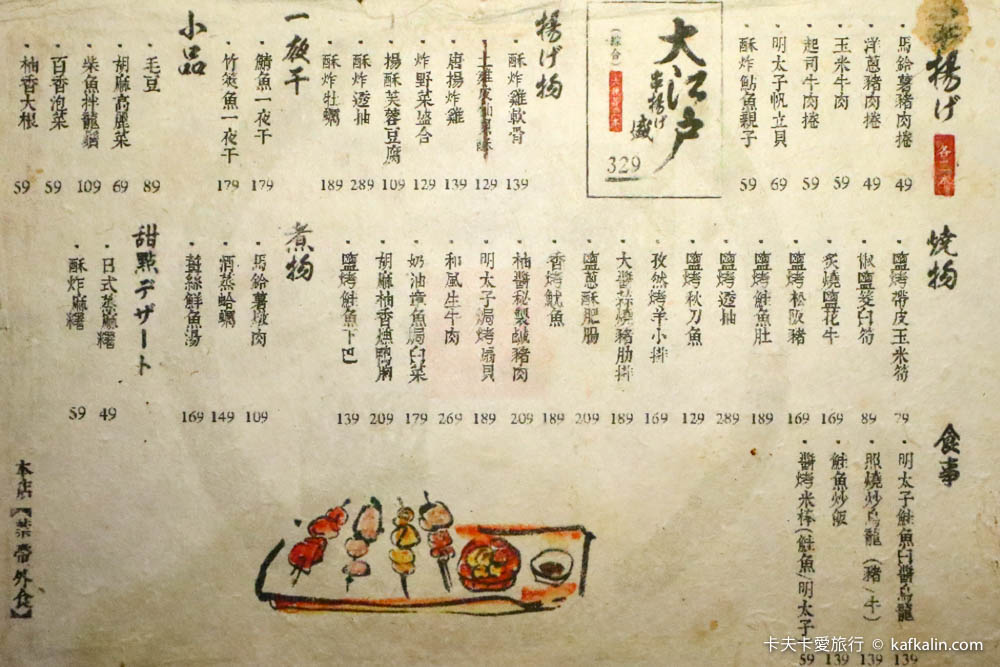 串揚げ
各二串
馬鈴薯豬肉捲 49
洋蔥豬肉捲 49
玉米牛肉 59
起司牛肉捲 59
明太子帆立貝 69
酥炸鮎魚親子 59
大江戶
串揚げ
盛
(綜合)
329
揚げ物
酥炸雞軟骨 139
129
唐揚炸雞 139
炸野菜盛合 129
揚酥芙蓉豆腐 109
酥炸透抽 289
酥炸牡蠣 189
一夜干
鯖魚一夜干 179
竹筴魚一夜干 179
小品
毛豆 89
胡麻高麗菜 69
柴魚拌龍鬚 109
百香泡菜 59
柚香大根 59
燒物
鹽烤帶皮玉米筍 79
椒鹽筊白筍 89
炙燒鹽花牛 169
鹽烤松阪豬 169
鹽烤鮭魚肚 189
鹽烤透抽 289
鹽烤秋刀魚 129
孜然烤羊小排 169
大醬蒜燒豬肋排 189
鹽蔥酥肥腸 209
香烤魷魚 189
柚醬秘製鹹豬肉 209
明太子焗烤扇貝 189
和風生牛肉 269
奶油撞魚焗白菜 179
胡麻柚香燻鴨胸 209
鹽烤鮭魚下巴 139
煮物
馬鈴薯燉肉 109
酒蒸蛤蠣 149
蠶絲鮮魚湯 169
甜點デザート
日式蒸麻糬 49
酥炸麻糬 59
食事
明太子鮭魚白醬烏龍 139
照燒炒烏龍(豬/牛) 139
鮭魚炒飯 139
醬烤米棒(鮭魚/明太子) 59
本店【禁帶外食】
卡夫卡愛旅行 © kafkalin.com